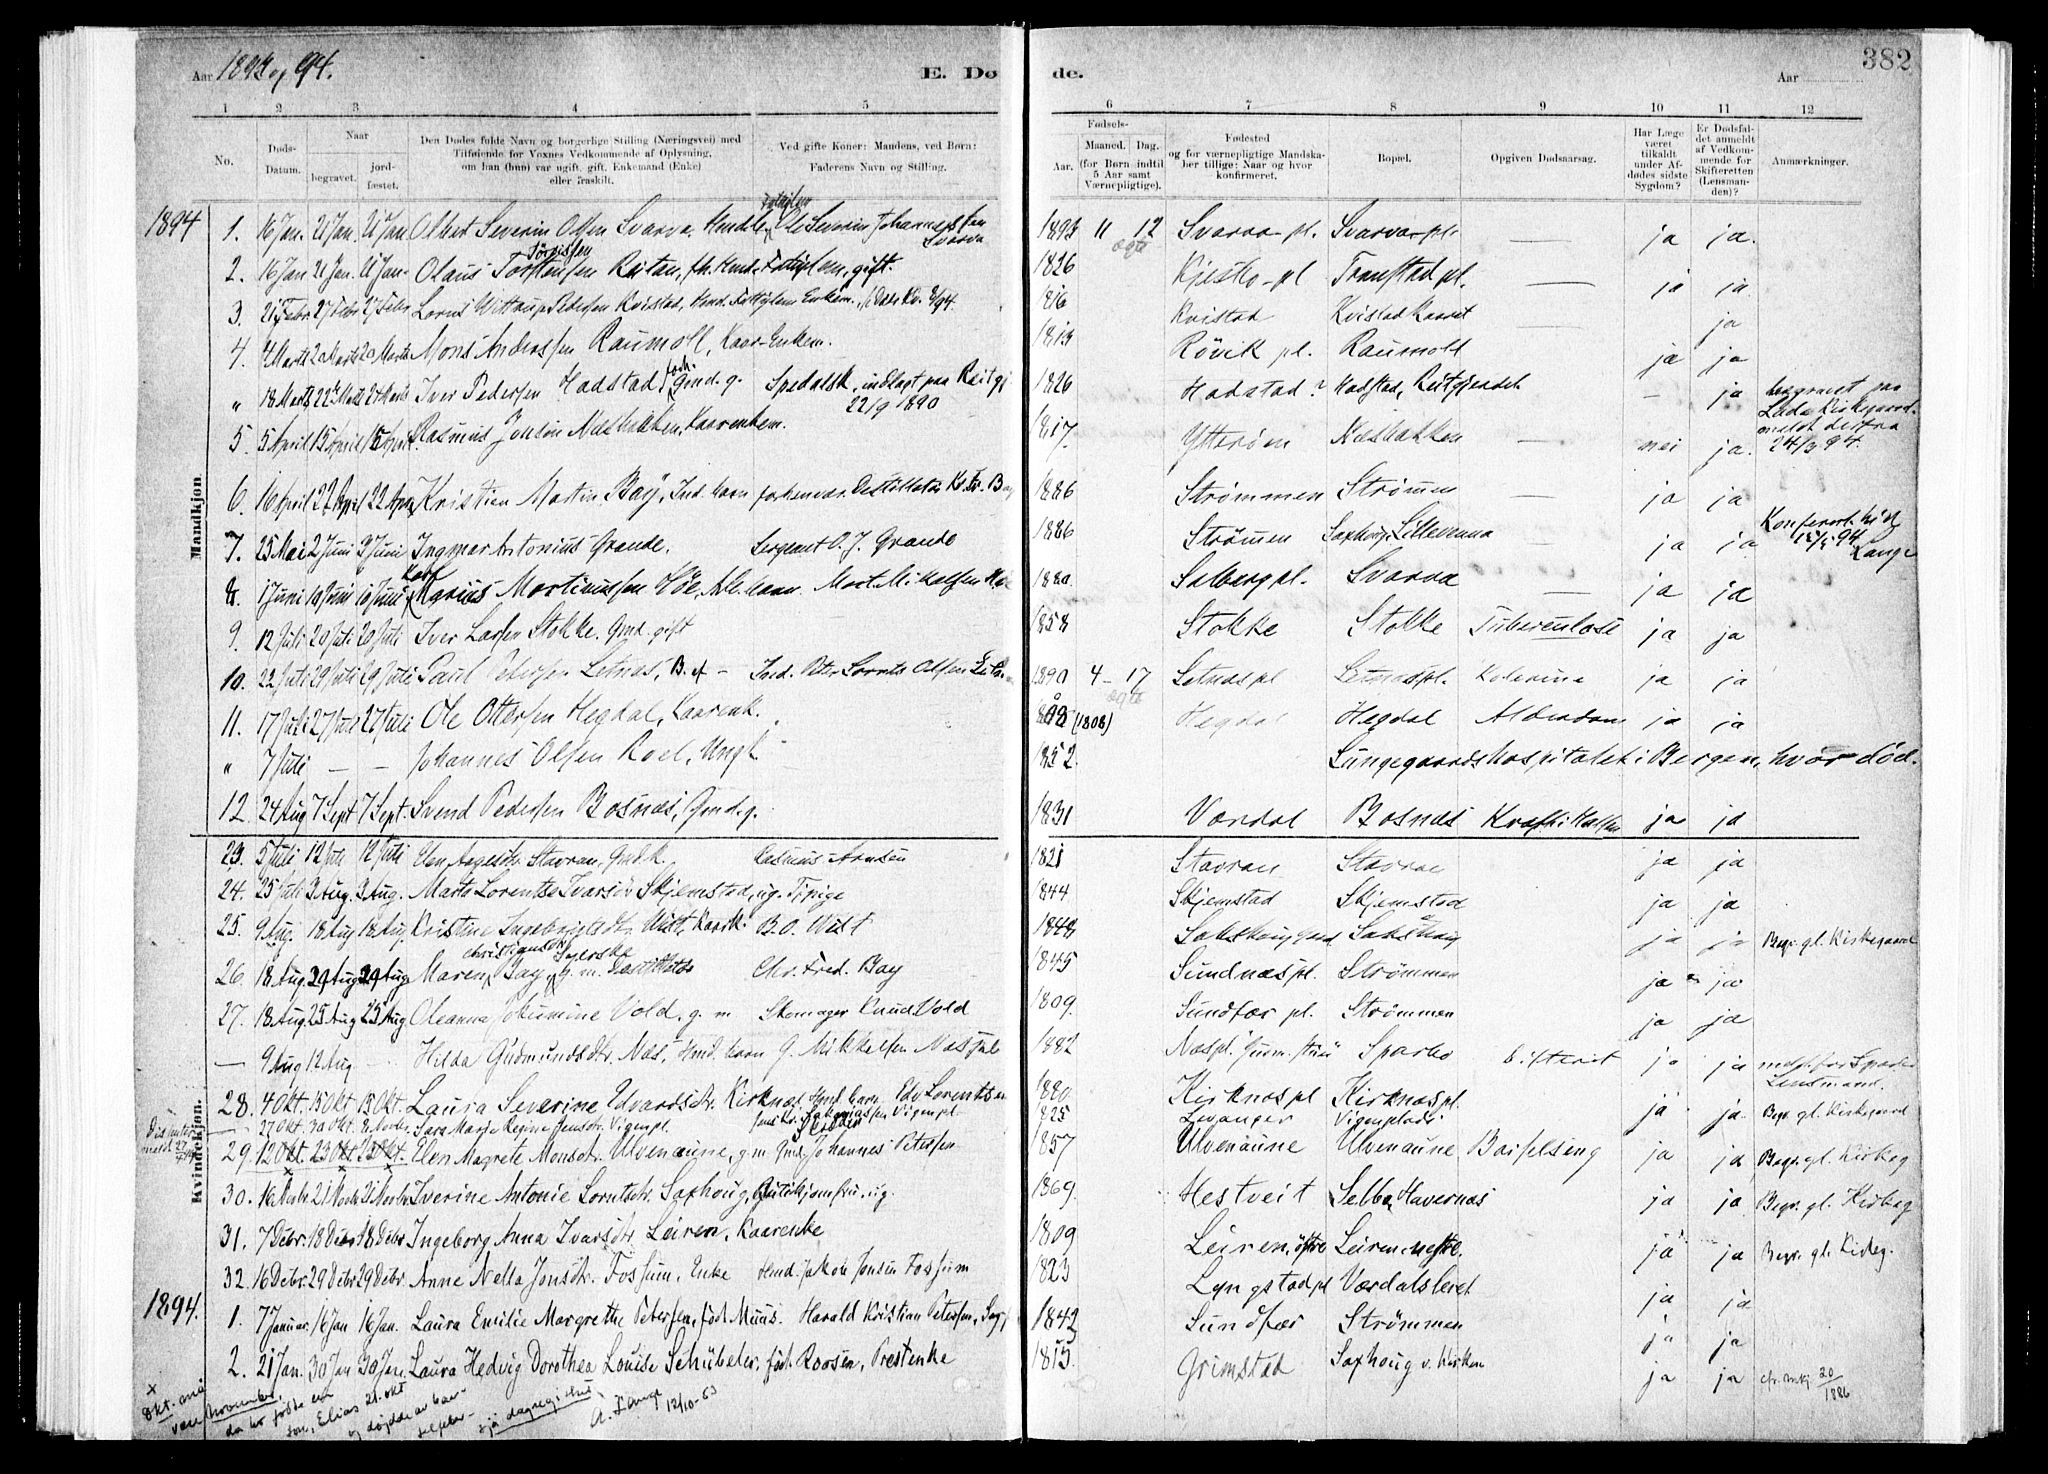 Aar 1893 og 94. E. Dø de. Aar 382
1 2 3 4 5 6 7 8 9 10 11 12
No. Døds-Datum. Naar begravet. jordfæstet. Den Dødes fulde Navn og borgerlige Stilling (Næringsvei) med Tilføiende for Voxnes Vedkommende af Oplysning, om han (hun) var ugift, gift, Enkemand (Enke) eller fraskilt. Ved gifte Koner: Mandens, ved Børn: Faderens Navn og Stilling. Fødsels- Aar. Maaned. Dag. (for Børn indtil 5 Aar samt Værnepligtige). Fødested og for værnepligtige Mandskaber tillige: Naar og hvor konfirmeret. Bopæl. Opgiven Dødsaarsag. Har Læge været tilkaldt under Afdødes sidste Sygdom? Er Dødsfaldet anmeldt af Vedkommende for Skifteretten (Lensmanden)? Anmærkninger.
Mandkjøn
1894 1. 16 Jan. 21 Jan. 21 Jan. Albert Severin Olsen Svarva. Ole Severin Johannessen Svarva 1893 11 12 ægte Svarva pl. Svarva pl. — ja ja.
2. 16 Jan 21 Jan. 21 Jan. Olaus Torstensen Reitan, Fattiglem, gift. 1826 Tronstad pl. — ja ja
3. 21 Febr. 27 Febr 27 Febr Lornts Wittrup Pedersen Kvistad, Fattiglem Enkem. 1816 Kvistad Kvistad — ja
4. 4 Marts 20 Marts 20 Marts Mons Anderssen Raumoll, Kaar-Enkem. 1813 Røvik pl. Raumoll ja ja
" 18 Marts 22 Marts Iver Pedersen Hadstad, Gmd. g. Spedalsk, indlagt paa Reitgj. 22/9 1890 1826 Hadstad? Hadstad, Reitgjerdet — ja begravet paa Lade Kirkegaard. meldt derfra 24/3 94.
5. 5 April 15 April 15 April Rasmus Jonsen Næsbakken, Kaarenkem. 1817 Ytterøen Næsbakken — nei ja.
6. 16 April 22 April 22 April Kristian Martin Bay, Ind. barn Destillatør Kr. Fr. Bay 1886 Strømmen Strømmen — ja ja
7. 25 Mai 2 Juni 3 Juni Ingmar Antonius Grande. Sergeant O. J. Grande 1886 Strømmen Saxhoug Lillevenna ja ja 15/5 94 Lange
8. 1 Juni 10 Juni 10 Juni Karl Marius Martinussen Høe, Mart. Mikalsen Høe 1880 Salberg pl. Svarva — ja ja
9. 12 Juli 20 Juli 20 Juli Iver Larsen Stokke. Gmd. gift 1858 Stokke Stokke Tuberculose ja ja
10. 22 Juli 29 Juli 29 Juli Paul Petersen Letnæs, B. af — Ind. Peter Lornts Olsen 1890 4 - 17 ægte Letnæs pl Letnæs pl. Kolerine ja ja
11. 17 Juli 27 Juli 27 Juli Ole Ottersen Hegdal, Kaarenk. (1808) Hegdal Hegdal Alderdom ja ja
" 7 Juli — — Johannes Olsen Roel, Ungk. 1852 Lungegaardshospitalet i Bergen, hvor død.
12. 24 Aug 7 Sept 7 Sept. Svend Pedersen Bosnæs, Gmd. g. 1831 Værdal Bosnæs ja ja
Kvindekjøn.
23. 5 Juli 12 Juli 12 Juli Stavran, Gmd. k. Rasmus Arntsen 1821 Stavran Stavran ja ja
24. 25 Juli 3 Aug. 3 Aug. Marta Lorentse Ivarsdtr Skjemstad, ug. Tjpige 1844 Skjemstad Skjemstad ja ja
25. 9 Aug. 18 Aug 18 Aug. Kristine Ingebrigtsdtr. Wist, Kaark. B. O. Wist Sakshaug ja ja Begr. gl. Kirkegaard
26. 18 Aug. 29 Aug 29 Aug Maren Christiansdr Bay, g. m. Chr. Fred. Bay 1845 Sundnæs pl. Strømmen ja ja
27. 18 Aug. 25 Aug 25 Aug Oleanna Jokumine Vold, g. m Skomager Knud Vold 1809. Sundfær pl. Strømmen ja ja
— 9 Aug 12 Aug — Hilda Gudmundsdtr. Næs, Ind. barn G. Mikkelsen Næs pl 1882 Næs pl. Sparbo Difterit ja ja meldt for Sparbo Lensmand.
28. 4 Okt. 15 Okt 15 Okt. Laura Severine Edvardsdtr. Kirknæs Ind. barn. Edv. Lorentsen 1880. Kirknæs pl Kirknæs pl. ja ja. Begr. gl. Kirkegaard
— 27 Okt. 30 Okt. Sara Marie Regine Jensdtr. Vigenpl. Vigenpl. 1825 Levanger Vigenplads
29. 12 Okt. 23 Okt 23 Okt. Elen Magrete Monsdtr. Ulvenaune, g. m. Ind. Johannes Petersen 1857 Ulvenaune Ulvenaune Barselseng ja ja Begr. gl. Kirkeg
30. 21 Iverine Antonie Lorntsdtr. Saxhoug, Butikjomfru, ug. 1869. Hestveit Selba, Havernæs ja ja Begr. gl. Kirkeg
31. 7 Debr. 18 Debr 18 Debr Ingeborg Anna Ivarsdtr Leiren, Kaarenke 1809 Leiren, østre Leiren, nestre. ja ja Begr. gl. Kirkeg.
32. 16 Debr. 29 Debr 29 Debr. Anne Nella Jonsdtr. Fossum, Enke Ind. Jakob Jonsen Fossum 1823 Lyngstad pl Værdalsleret ja ja
1894. 1. 7 Januar. 16 Jan 16 Jan. Laura Emilie Margrethe Petersen, født Muus. Harald Kristian Petersen, 1842 Sundfær Strømmen ja ja
2. 21 Jan. 30 Jan 30 Jan. Laura Hedvig Dorothea Louise Schübeler, født Roosen, Prestenke 1815. Grimstad Saxhoug v. Kirken ja ja cfr. 20/1886
x Okt. må være November, da ho fødte en son, Elias 21. okt og døydde av bar- selfeber — sjå dagregistrui A. Lange 12/10-53